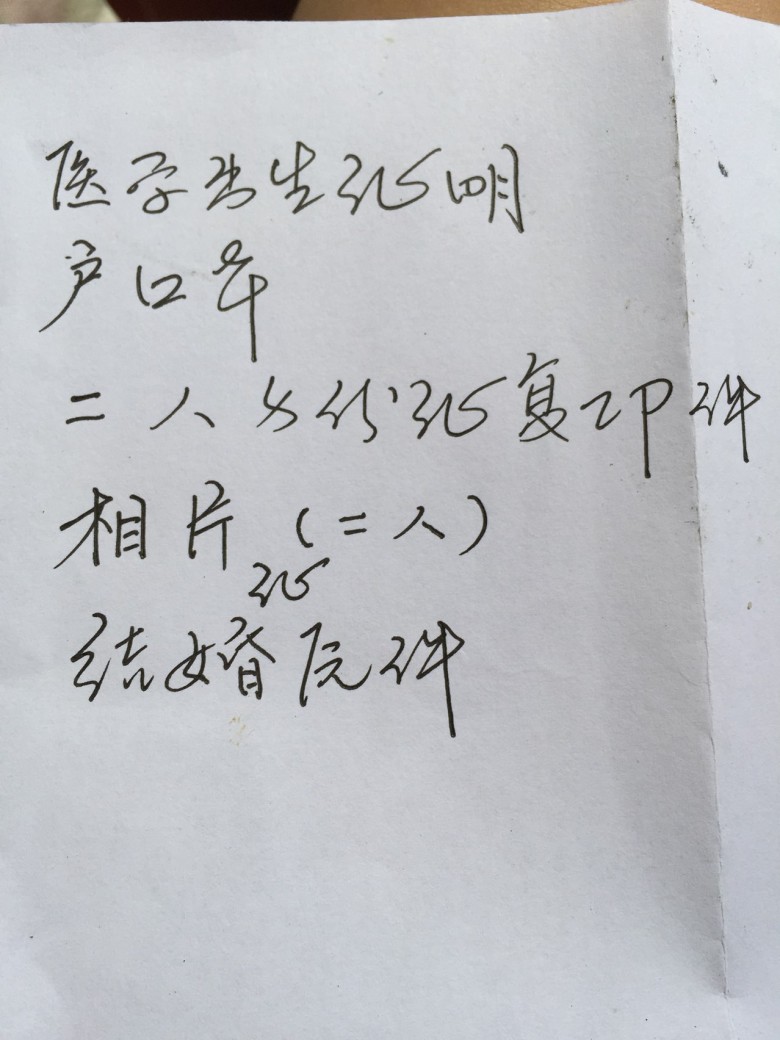 医学出生证明
户口本
二人身份证复印件
相片（二人）
结婚证原件